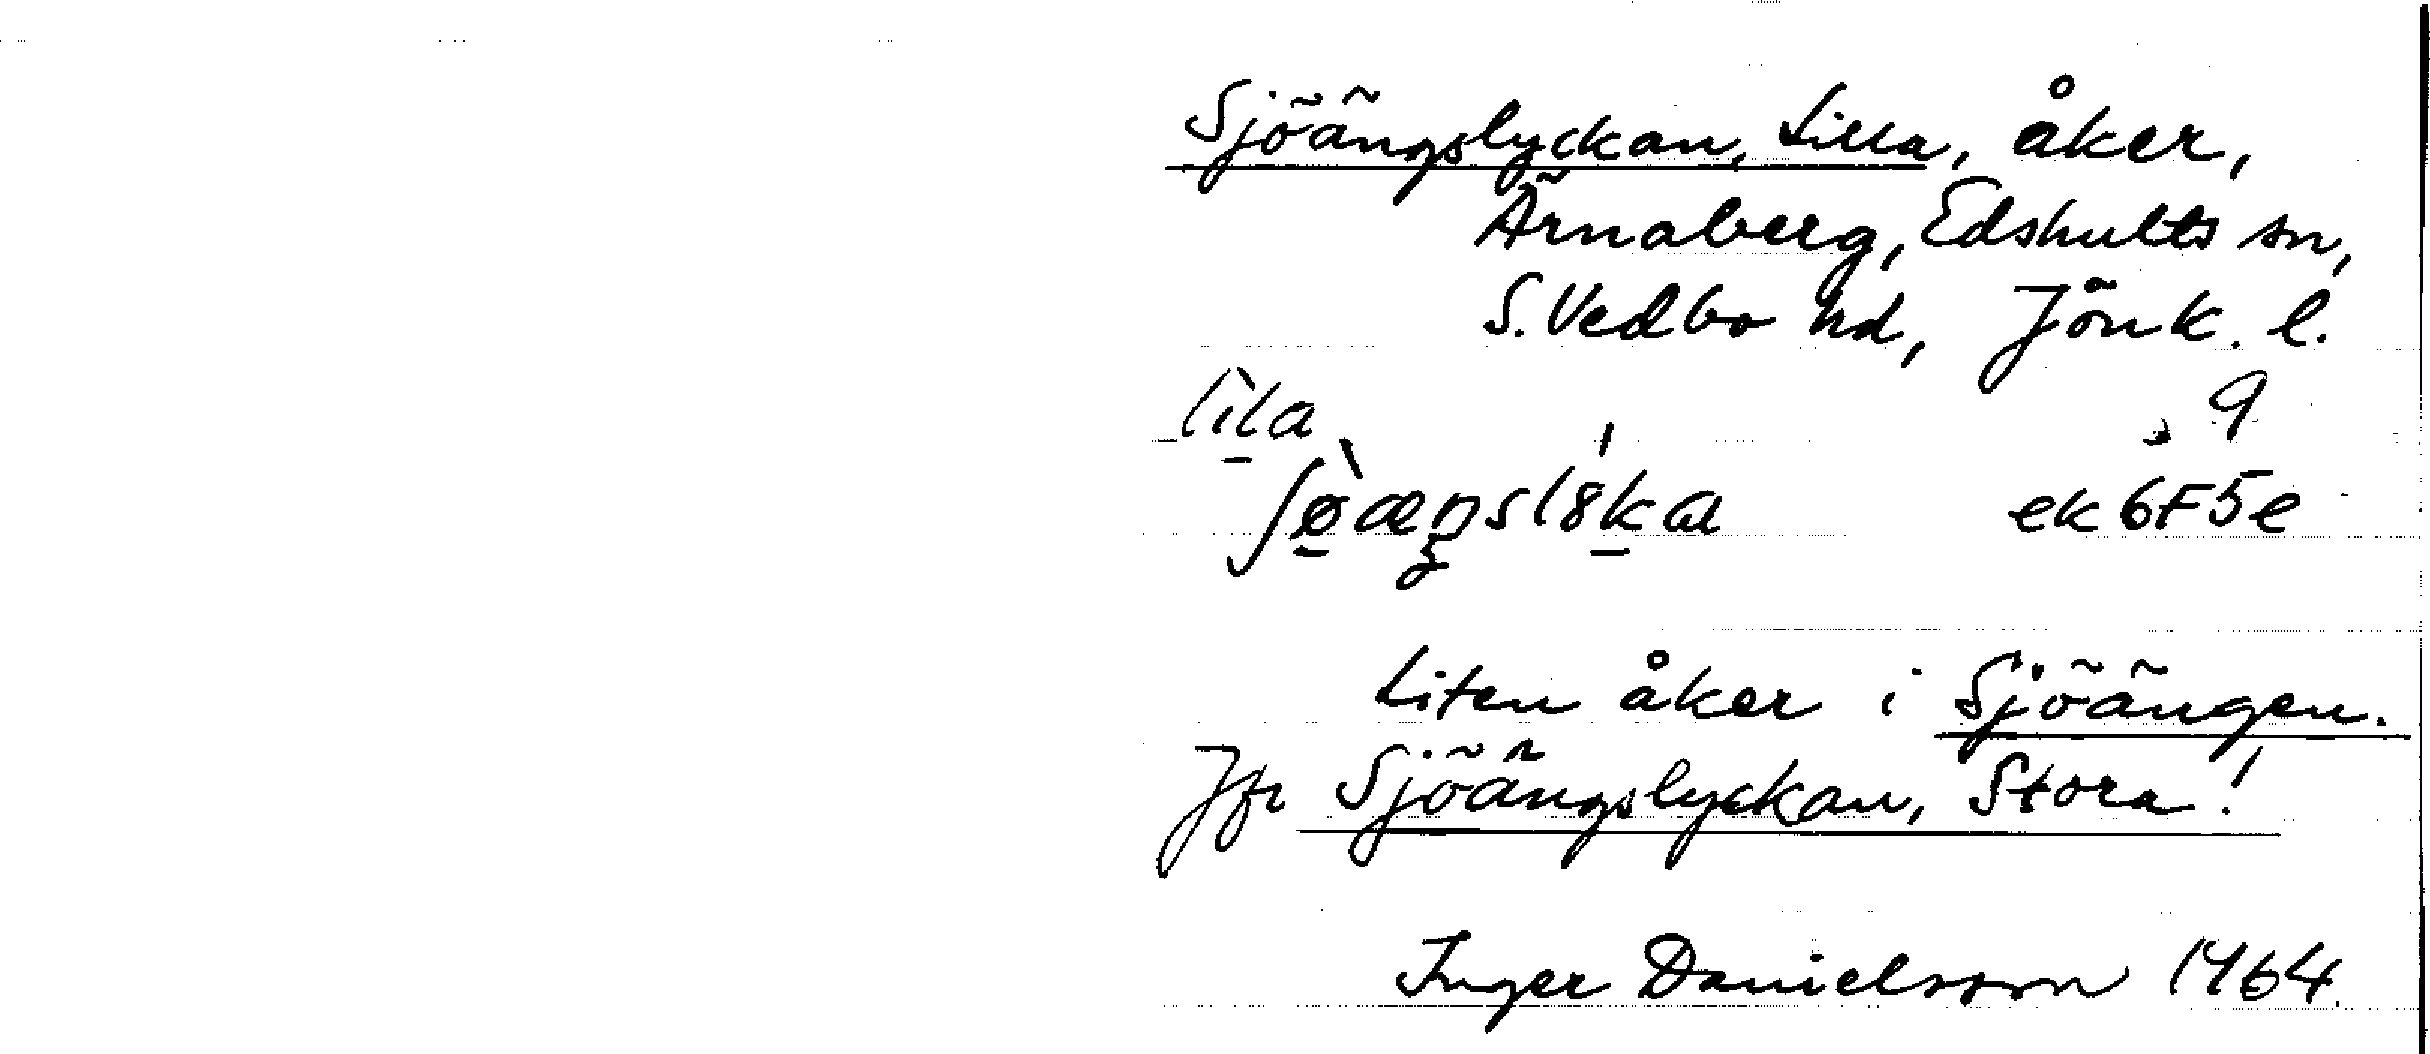 Sjöängslyckan, Lilla, åker,
Ärnaberg, Edshults sn,
S. Vedbo hd, Jönk. l.
lìla 9
ʃø̀æŋslȣka ek 6F5e
Liten åker i Sjöängen.
Jfr Sjöängslyckan, Stora!
Inger Danielsson 1964